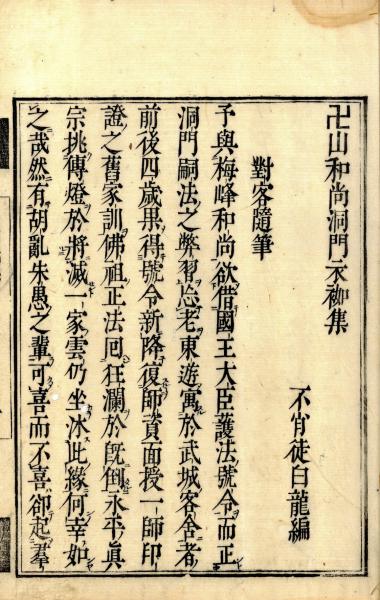 卍山和尚洞門衣袽集
不肖徒白龍編
對客隨筆
予與梅峰和尚欲借國王大臣護法號令而正
洞門嗣法之弊習忘老東遊寓於武城客舍者
前後四歲果得號令新降復師資面授一師印
證之舊家訓佛祖正法回狂瀾於既倒永平眞
宗挑傳燈於將滅一家雲仍坐沐此緣何幸如
之哉然有胡亂朱愚之輩可喜而不喜卻起羣